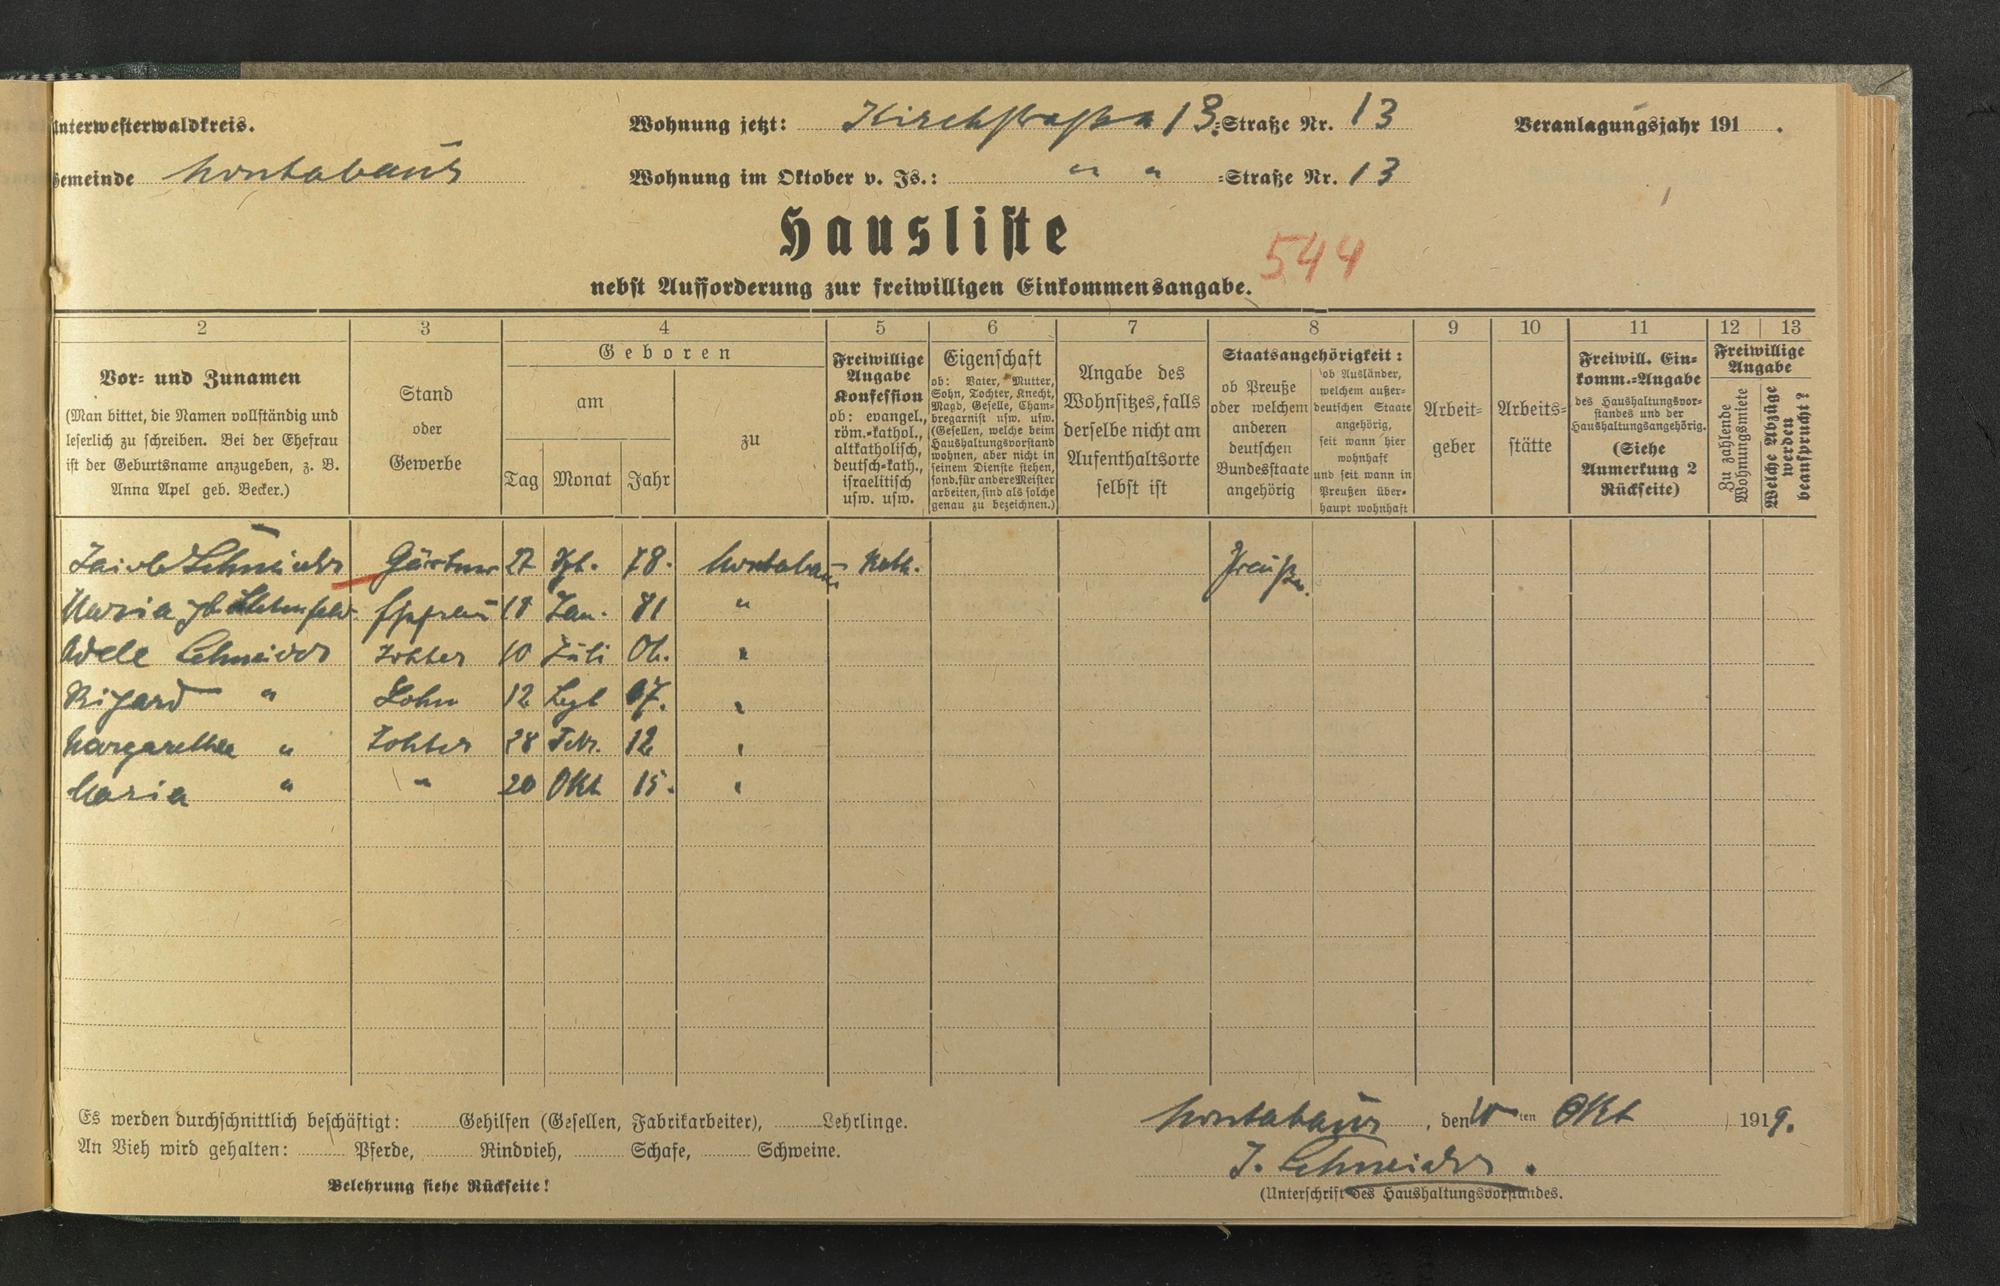 Unterwesterwaldkreis.
Wohnung jetzt: Kirchstraße 13 =Straße Nr. 13
Veranlagungsjahr 191 .
Gemeinde Montabaur
Wohnung im Oktober v. Js.: " " =Straße Nr. 13
Hausliste
544
nebst Aufforderung zur freiwilligen Einkommensangabe.
2 3 4 5 6 7 8 9 10 11 12 13
Vor- und Zunamen
(Man bittet, die Namen vollständig und
leserlich zu schreiben. Bei der Ehefrau
ist der Geburtsname anzugeben, z. B.
Anna Apel geb. Becker.)
Stand
oder
Gewerbe
Geboren
am
Tag Monat Jahr
zu
Freiwillige
Angabe
Konfession
ob: evangel.,
röm.-kathol.,
altkatholisch,
deutsch-kath.,
israelitisch
usw. usw.
Eigenschaft
ob: Vater, Mutter,
Sohn, Tochter, Knecht,
Magd, Geselle, Cham-
bregarnist usw. usw.
(Gesellen, welche beim
Haushaltungsvorstand
wohnen, aber nicht in
seinem Dienste stehen,
sond. für andere Meister
arbeiten, sind als solche
genau zu bezeichnen.)
Angabe des
Wohnsitzes, falls
derselbe nicht am
Aufenthaltsorte
selbst ist
Staatsangehörigkeit:
ob Preuße
oder welchem
anderen
deutschen
Bundesstaate
angehörig
ob Ausländer,
welchem außer-
deutschen Staate
angehörig,
seit wann hier
wohnhaft
und seit wann in
Preußen über-
haupt wohnhaft
Arbeit-
geber
Arbeits-
stätte
Freiwill. Ein-
komm.-Angabe
des Haushaltungsvor-
standes und der
Haushaltungsangehörig.
(Siehe
Anmerkung 2
Rückseite)
Freiwillige
Angabe
Zu zahlende
Wohnungsmiete
Welche Abzüge
werden
beansprucht?
Jacob Schneider Gärtner 27 78. Montabaur Kath. Preuße.
Maria Ehefrau 18 Jan. 81 "
Adele Schneider Tochter 10 Juli 06. "
Rihard " Sohn 12 Sept 07. "
Margarethe " Tochter 28 Febr. 12 "
Maria " " 20 Okt 15. "
Es werden durchschnittlich beschäftigt: Gehilfen (Gesellen, Fabrikarbeiter), Lehrlinge.
An Vieh wird gehalten: Pferde, Rindvieh, Schafe, Schweine.
Belehrung siehe Rückseite!
Montabaur, den 10ten Okt 1919.
J. Schneider.
(Unterschrift des Haushaltungsvorstandes.